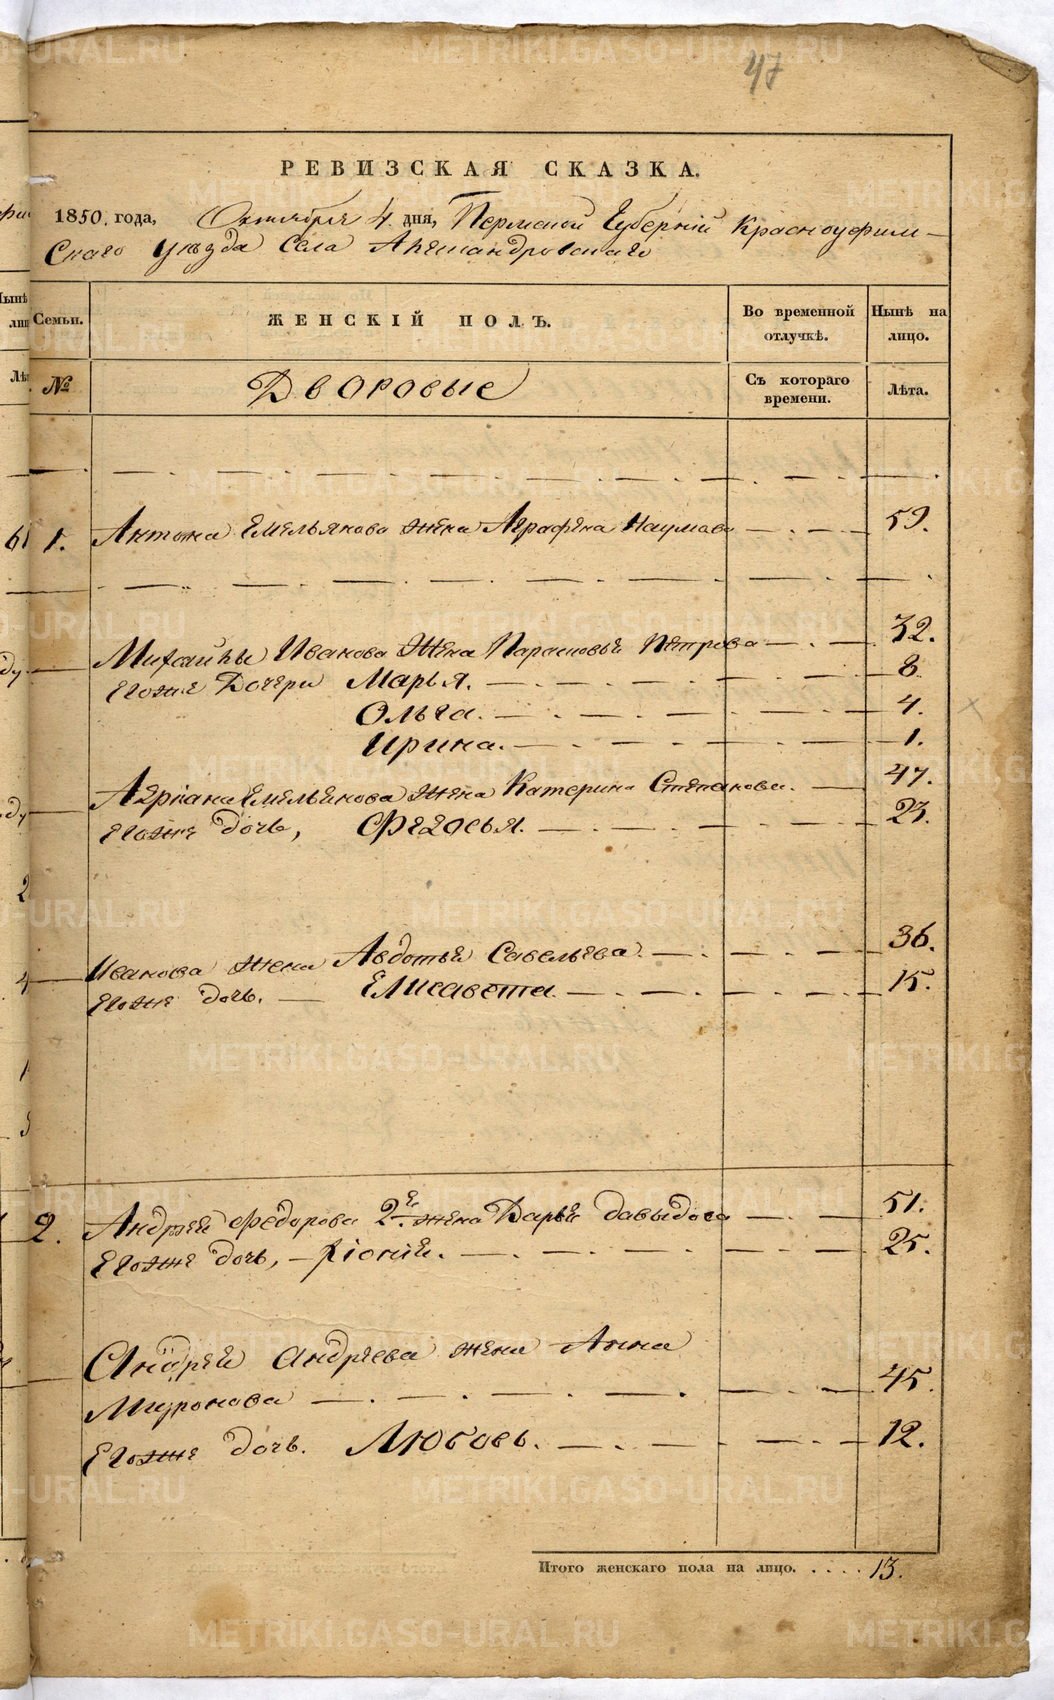 47
РЕВИЗСКАЯ СКАЗКА.
1850. года, Октября 4 дня, Пермской Губерніи Красноуфим-
скаго уѣзда Села Александровскаго
Семьи.
ЖЕНСКІЙ ПОЛЪ.
Во временной отлучкѣ.
Нынѣ на лицо.
№
Дворовые
Съ котораго времени.
Лѣта.
1. Антона Емельянова жена Аграфена Наумова 59.
Михайлы Иванова жена Парасковья Петрова 32.
Егоже Дочери Марья. 8
Ольга. 4.
Ирина. 1.
Адріана Емельянова жена Катерина Степанова. 47.
Егоже дочь, Федосья. 23.
Иванова жена Авдотья Савельева. 36.
Егоже дочь. Елисавета. 15.
2. Андрея Федорова 2я. жена Дарья Давыдова 51.
Егоже дочь, 25.
Андрея Андреева жена Анна
Миронова 45.
Егоже дочь. Любовь. 12.
Итого женскаго пола на лицо. . . . . 13.
METRIKI.GASO-URAL.RU